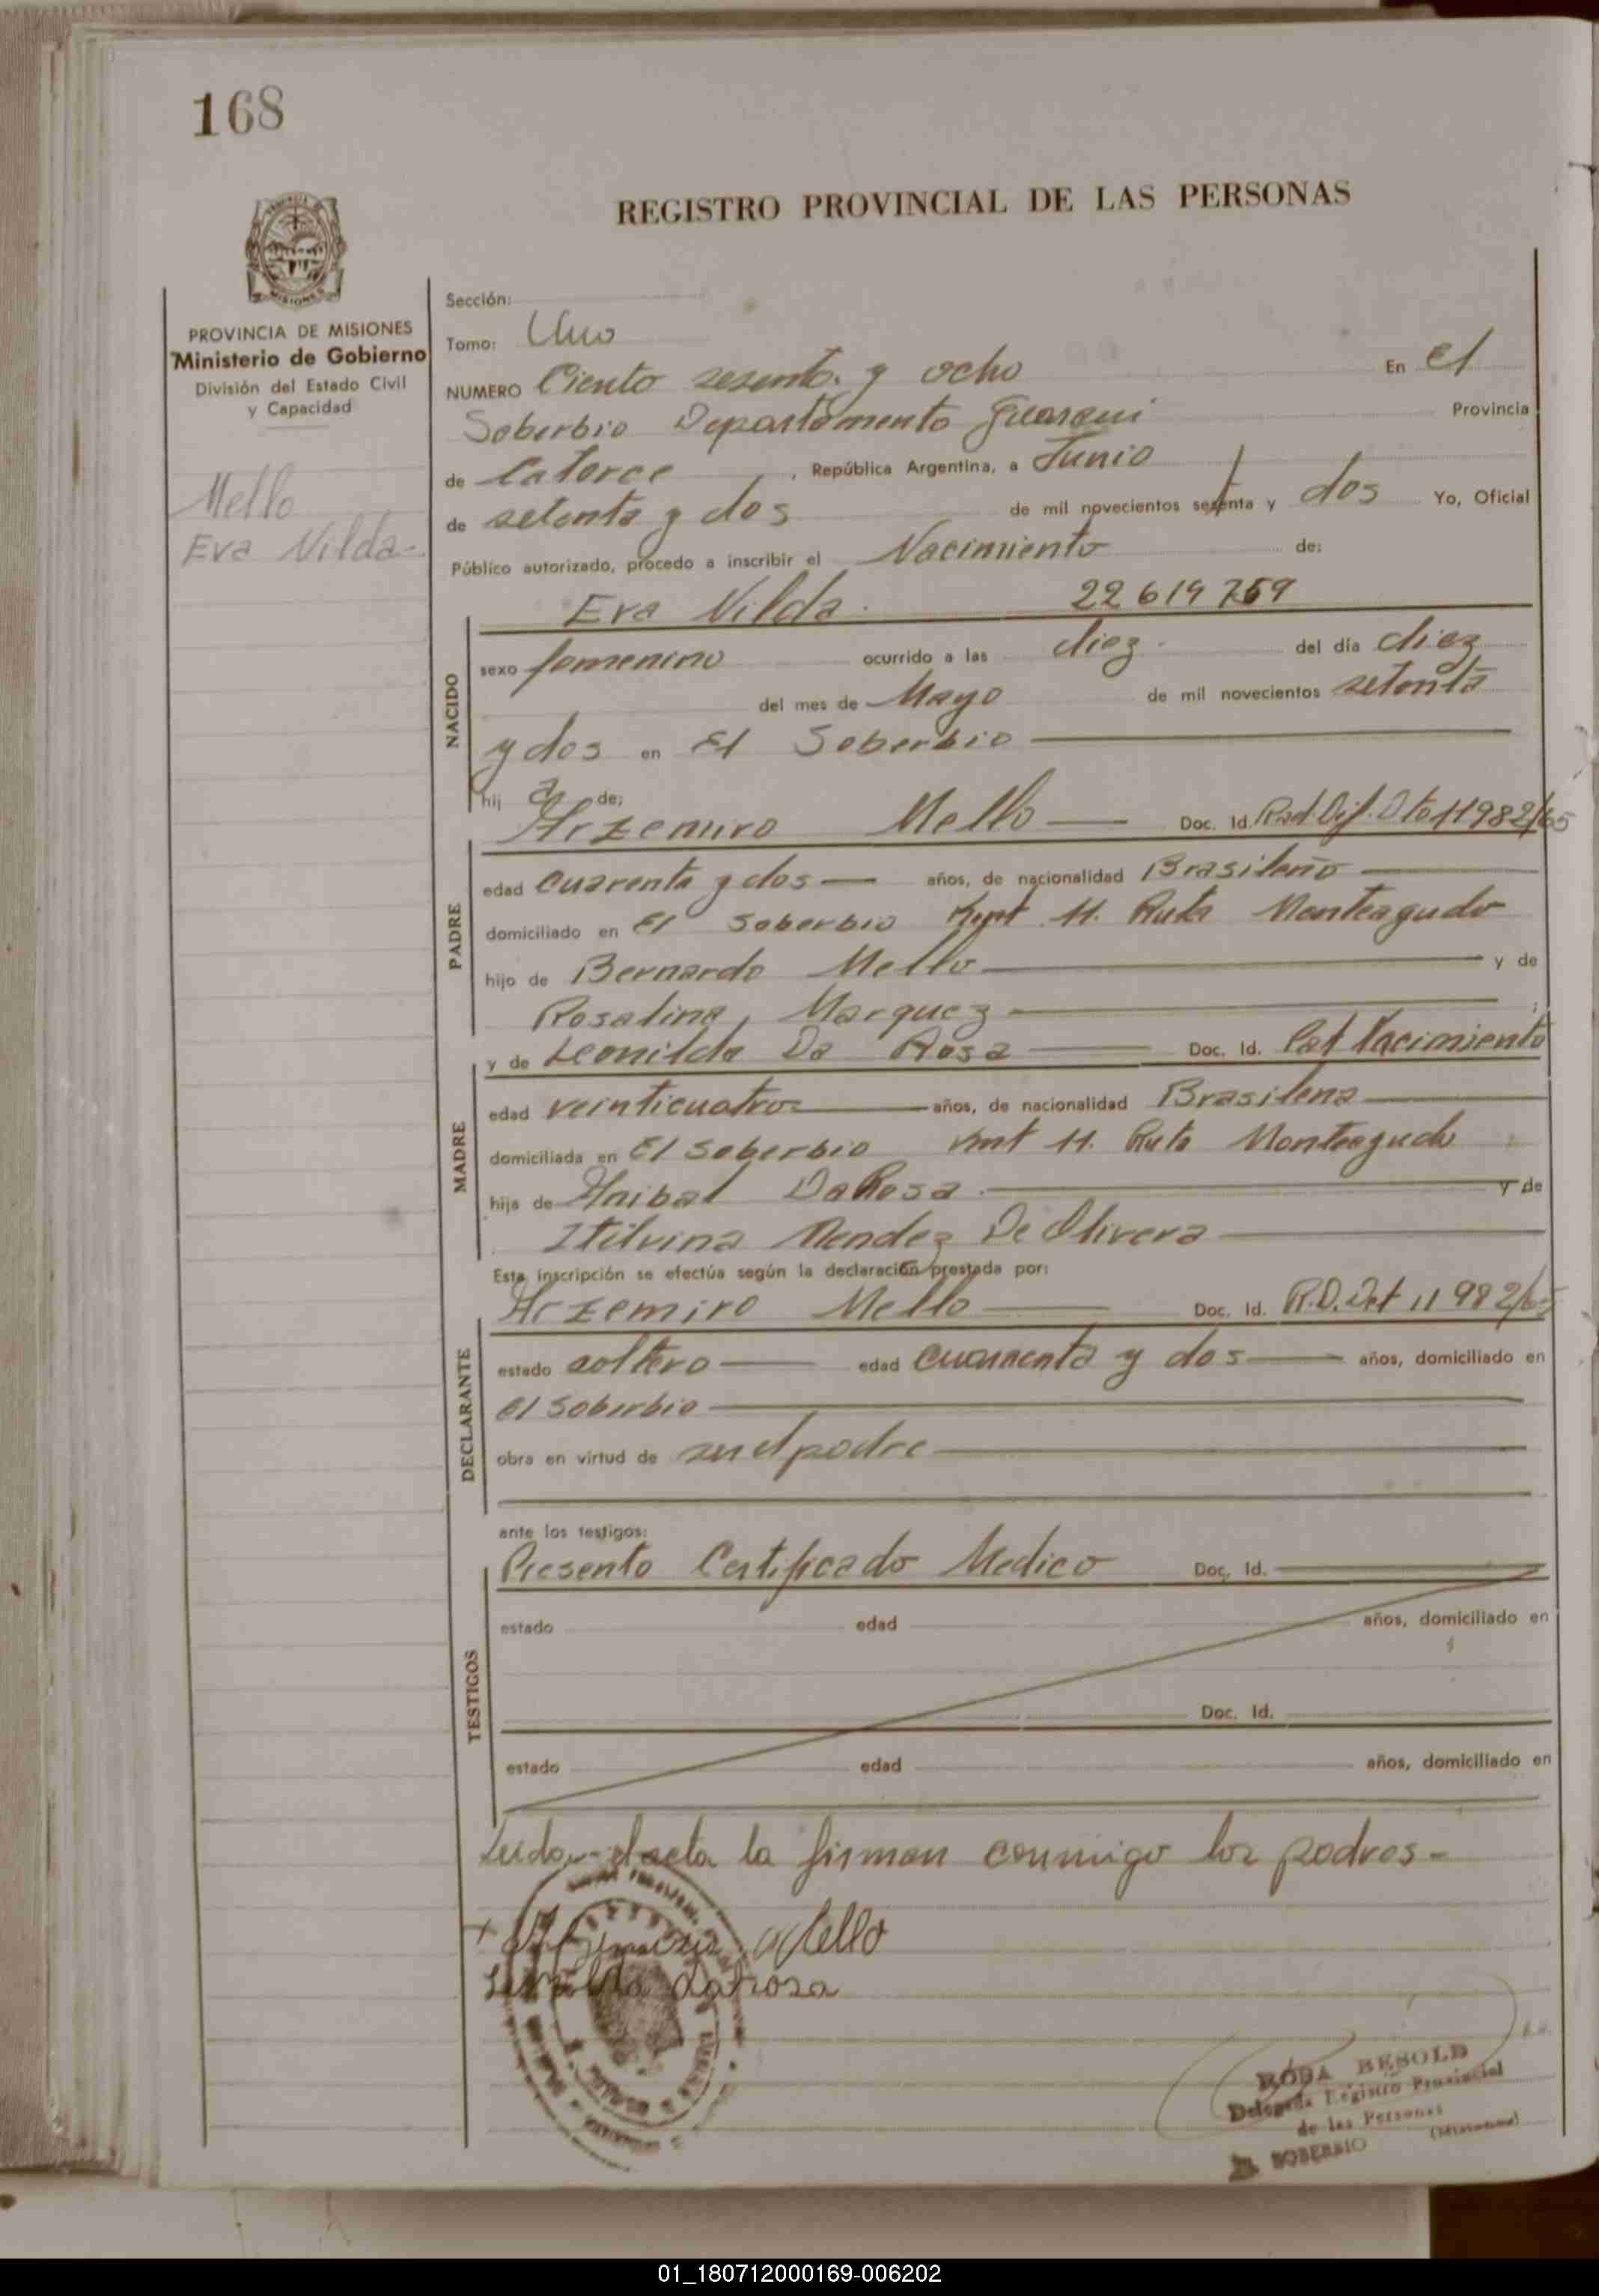 168
REGISTRO PROVINCIAL DE LAS PERSONAS
MISIONES
PROVINCIA DE MISIONES
Ministerio de Gobierno
División del Estado Civil
y Capacidad
Mello
Eva Nilda-
Sección:
Tomo: Uno
NUMERO Ciento sesenta y ocho En El
Soberbio Departamento Guarani Provincia
de Catorce, República Argentina, a Junio
de setenta y dos de mil novecientos sesenta y dos Yo, Oficial
Público autorizado, procedo a inscribir el Nacimiento de:
Eva Nilda. 22 619 759
NACIDO
sexo femenino ocurrido a las diez. del día diez
del mes de Mayo de mil novecientos setenta
y dos en El Soberbio
hij a de:
Arzemiro Mello Doc. Id. Rad. Dif. Dto 11982/65
PADRE
edad cuarenta y dos años, de nacionalidad Brasileño
domiciliado en El Soberbio 11. Ruta Monteagudo
hijo de Bernardo Mello y de
Rosalina Marquez
y de Leonilda Da Rosa Doc. Id. Cat Nacimiento
MADRE
edad veinticuatro años, de nacionalidad Brasilena
domiciliada en El Soberbio Kmt 11. Ruta Monteagudo
hija de Anibal DaRosa y de
Itilvina Mendez De Olivera
Esta inscripción se efectúa según la declaración prestada por:
Arzemiro Mello Doc. Id. R.D. Det 11982/65
DECLARANTE
estado soltero edad cuarenta y dos años, domiciliado en
El Soberbio
obra en virtud de ser el padre
ante los testigos:
Presento Certificado Medico Doc. Id.
TESTIGOS
estado edad años, domiciliado en
Doc. Id.
estado edad años, domiciliado en
Leida el acta la firman conmigo los padres-
+ Arzemiro Mello
Leonilda da rosa
RODA BESOLD
Delegada Registro Provincial
de las Personas
SOBERBIO (Misiones)
01_180712000169-006202